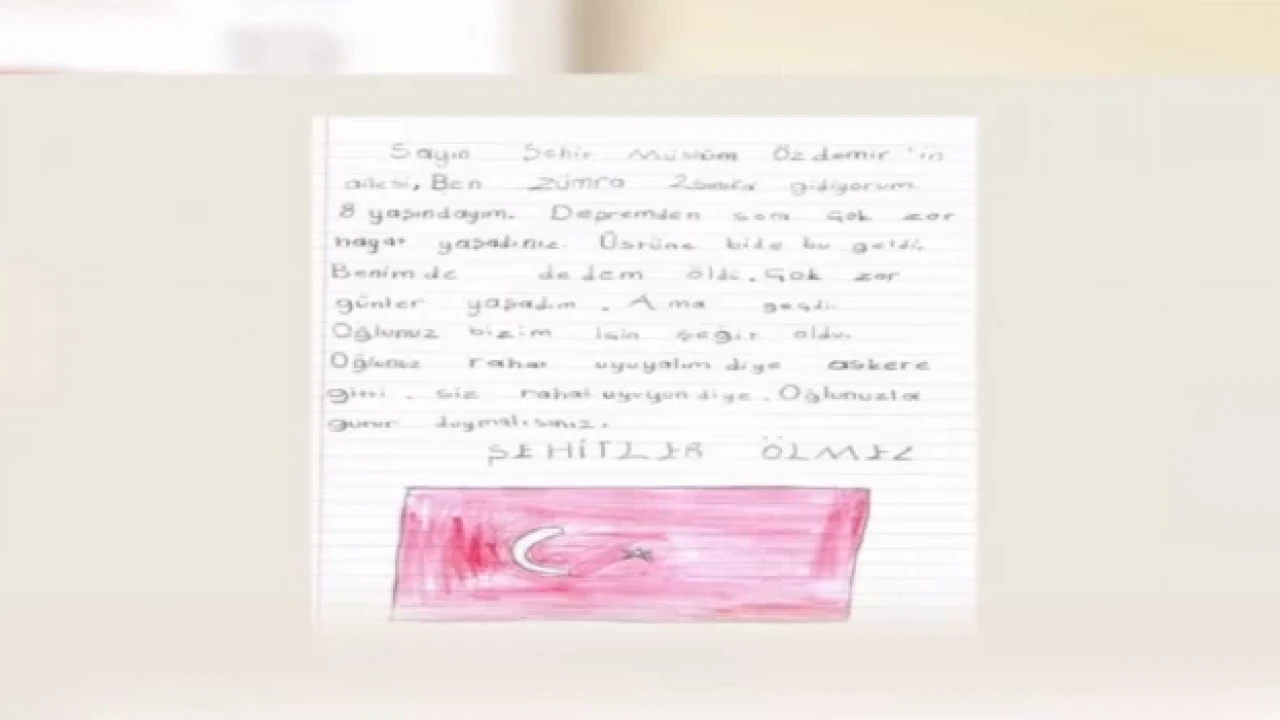 Sayın Şehit Müslüm Özdemir'in
ailesi, Ben Zümra 2 sınıfa gidiyorum
8 yaşındayım. Depremden sora çok zor
hayat yaşadınız. Üstüne bide bu geldi.
Benim de dedem öldi. Çok zor
günler yaşadım. Ama geçdi.
Oğlunuz bizim için şeğit oldu.
Oğlunuz rahat uyuyalım diye askere
gitti. siz rahat uyuyun diye. Oğlunuzla
gurur duymalısınız.
ŞEHİTLER ÖLMEZ